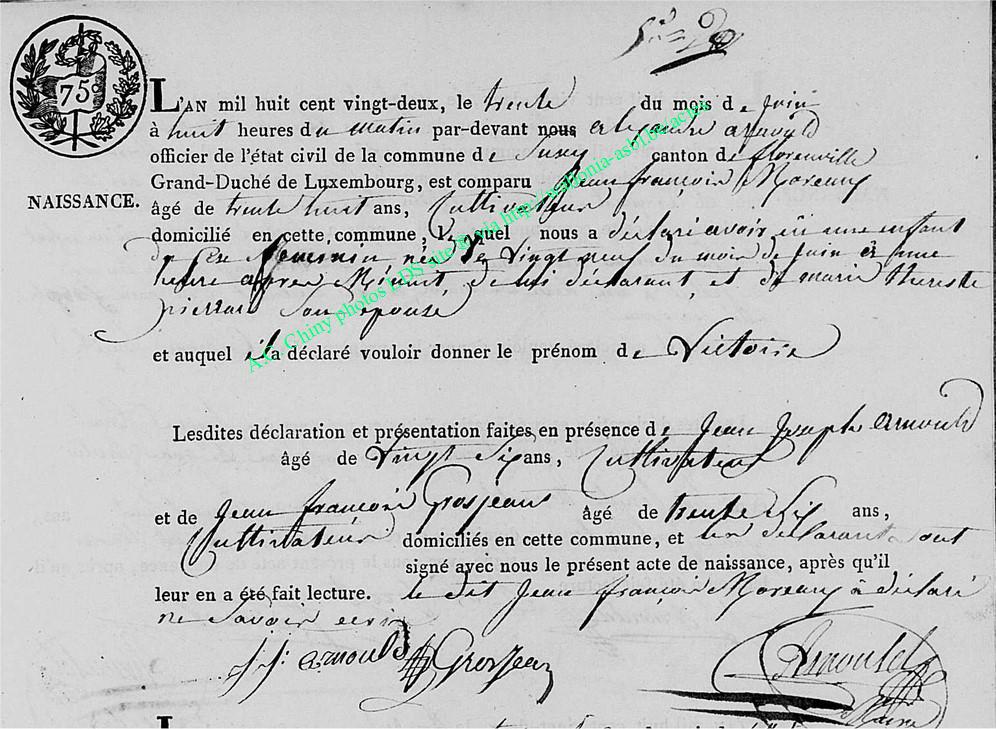 75
NAISSANCE.
L'AN mil huit cent vingt-deux, le trente du mois de juin
à huit heures du matin par-devant nous alexandre arnould
officier de l'état civil de la commune de Suxy canton de florenville
Grand-Duché de Luxembourg, est comparu Jean françois Moreaux
âgé de trente huit ans, Cultivateur
domicilié en cette commune, lequel nous a déclaré avoir eu une enfant
du sexe femenin née le Vingt neuf du mois de Juin à une
heure apres Minuit, de lui déclarant, et de marie Therese
pierrard son epouse
et auquel il a déclaré vouloir donner le prénom de Victoire
Lesdites déclaration et présentation faites en présence de Jean Joseph arnould
âgé de Vingt Six ans, Cultivateur
et de Jean françois Grosjean âgé de trente Six ans,
Cultivateur domiciliés en cette commune, et les déclarants ont
signé avec nous le présent acte de naissance, après qu'il
leur en a été fait lecture. le dit Jean françois Moreaux à déclaré
ne Savoir ecrir
J.J. arnould GrosJean Arnould
Maire
A.G. Chiny photos LDS site via http://ardonia-asbl.be/actes